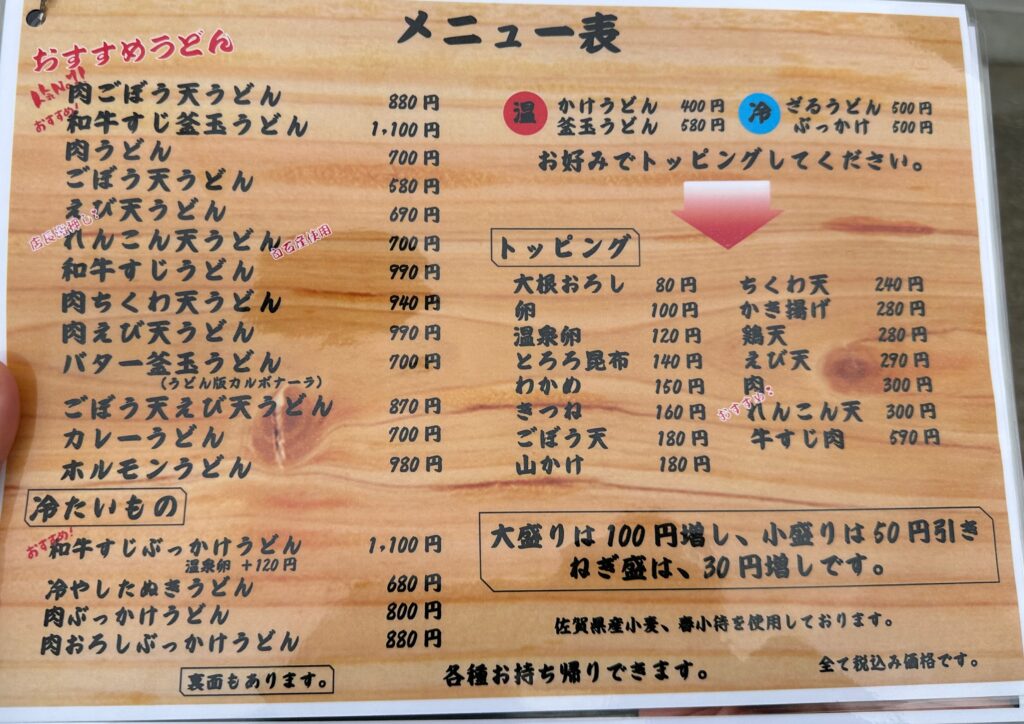 メニュー表
おすすめうどん
人気No.1!
肉ごぼう天うどん 880円
おすすめ!
和牛すじ釜玉うどん 1,100円
肉うどん 700円
ごぼう天うどん 580円
えび天うどん 690円
店長推し!
れんこん天うどん 700円
白石産使用
和牛すじうどん 990円
肉ちくわ天うどん 940円
肉えび天うどん 990円
バター釜玉うどん 700円
(うどん版カルボナーラ)
ごぼう天えび天うどん 870円
カレーうどん 700円
ホルモンうどん 980円
冷たいもの
おすすめ!
和牛すじぶっかけうどん 1,100円
温泉卵 +120円
冷やしたぬきうどん 680円
肉ぶっかけうどん 800円
肉おろしぶっかけうどん 880円
裏面もあります。
温
かけうどん 400円
釜玉うどん 580円
冷
ざるうどん 500円
ぶっかけ 500円
お好みでトッピングしてください。
トッピング
大根おろし 80円
卵 100円
温泉卵 120円
とろろ昆布 140円
わかめ 150円
きつね 160円
ごぼう天 180円
山かけ 180円
ちくわ天 240円
かき揚げ 280円
鶏天 280円
えび天 290円
肉 300円
おすすめ!
れんこん天 300円
牛すじ肉 590円
大盛りは100円増し、小盛りは50円引き
ねぎ盛は、30円増しです。
佐賀県産小麦、春小待を使用しております。
各種お持ち帰りできます。
全て税込み価格です。